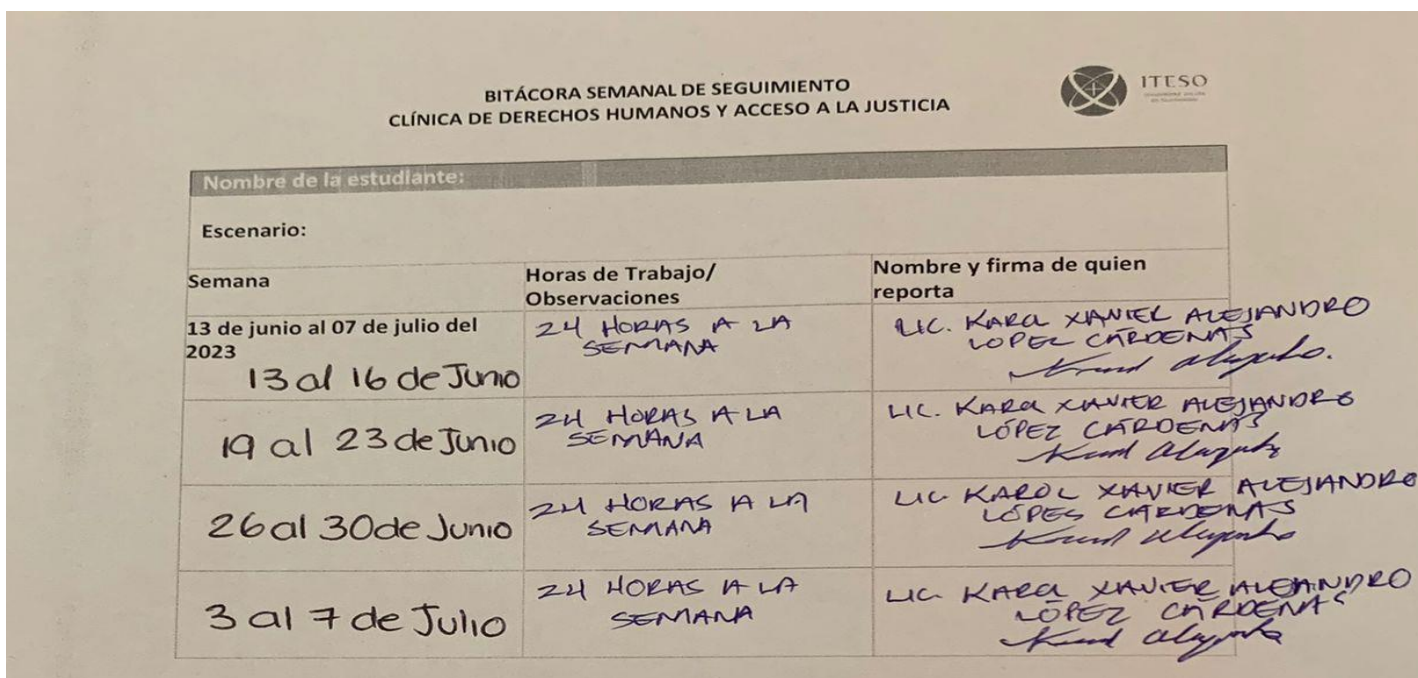 BITÁCORA SEMANAL DE SEGUIMIENTO
CLÍNICA DE DERECHOS HUMANOS Y ACCESO A LA JUSTICIA
ITESO
Nombre de la estudiante:
Escenario:
Semana
Horas de Trabajo/
Observaciones
Nombre y firma de quien
reporta
13 de junio al 07 de julio del
2023
13 al 16 de Junio
24 HORAS A LA
SEMANA
LIC. KAROL XAVIER ALEJANDRO
LOPEZ CÁRDENAS
19 al 23 de Junio
24 HORAS A LA
SEMANA
LIC. KAROL XAVIER ALEJANDRO
LÓPEZ CÁRDENAS
26 al 30 de Junio
24 HORAS A LA
SEMANA
LIC. KAROL XAVIER ALEJANDRO
LÓPES CÁRDENAS
3 al 7 de Julio
24 HORAS A LA
SEMANA
LIC. KAROL XAVIER ALEJANDRO
LÓPEZ CÁRDENAS